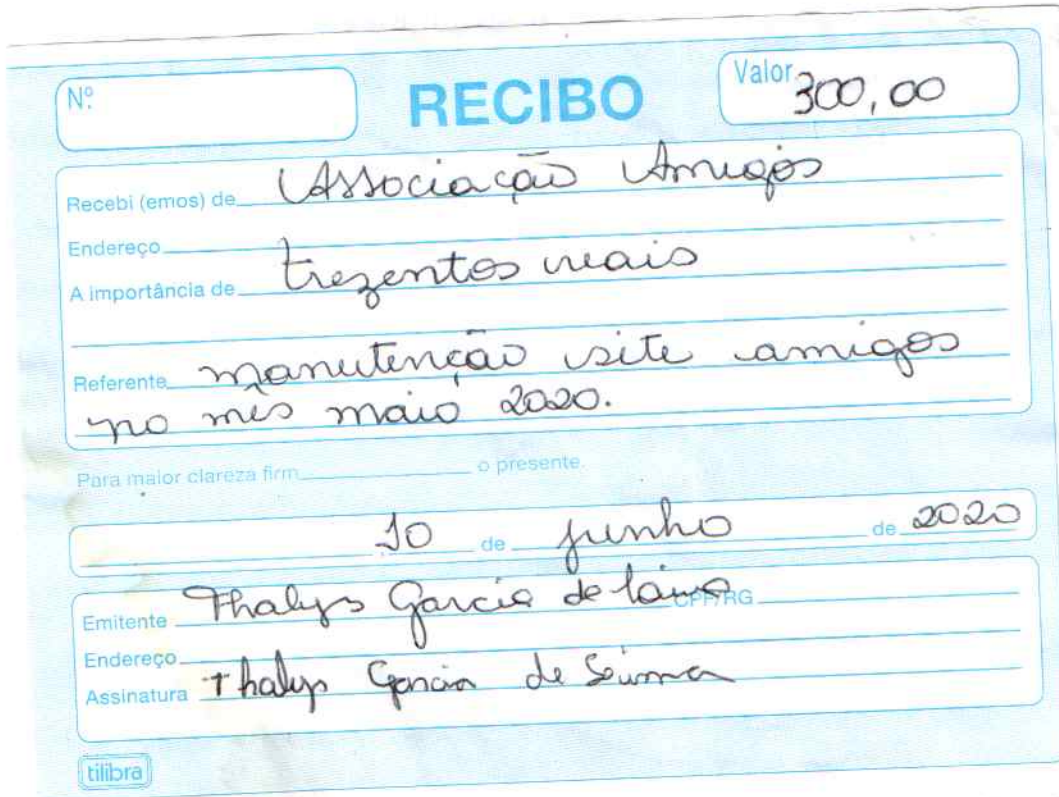 Nº.
RECIBO
Valor 300,00
Recebi (emos) de Associação Amigos
Endereço
A importância de trezentos reais
Referente manutenção site amigos
no mês maio 2020.
Para maior clareza firm o presente.
10 de junho de 2020
Emitente Thalys Garcia de CPF/RG
Endereço
Assinatura Thalys Garcia de
tilibra